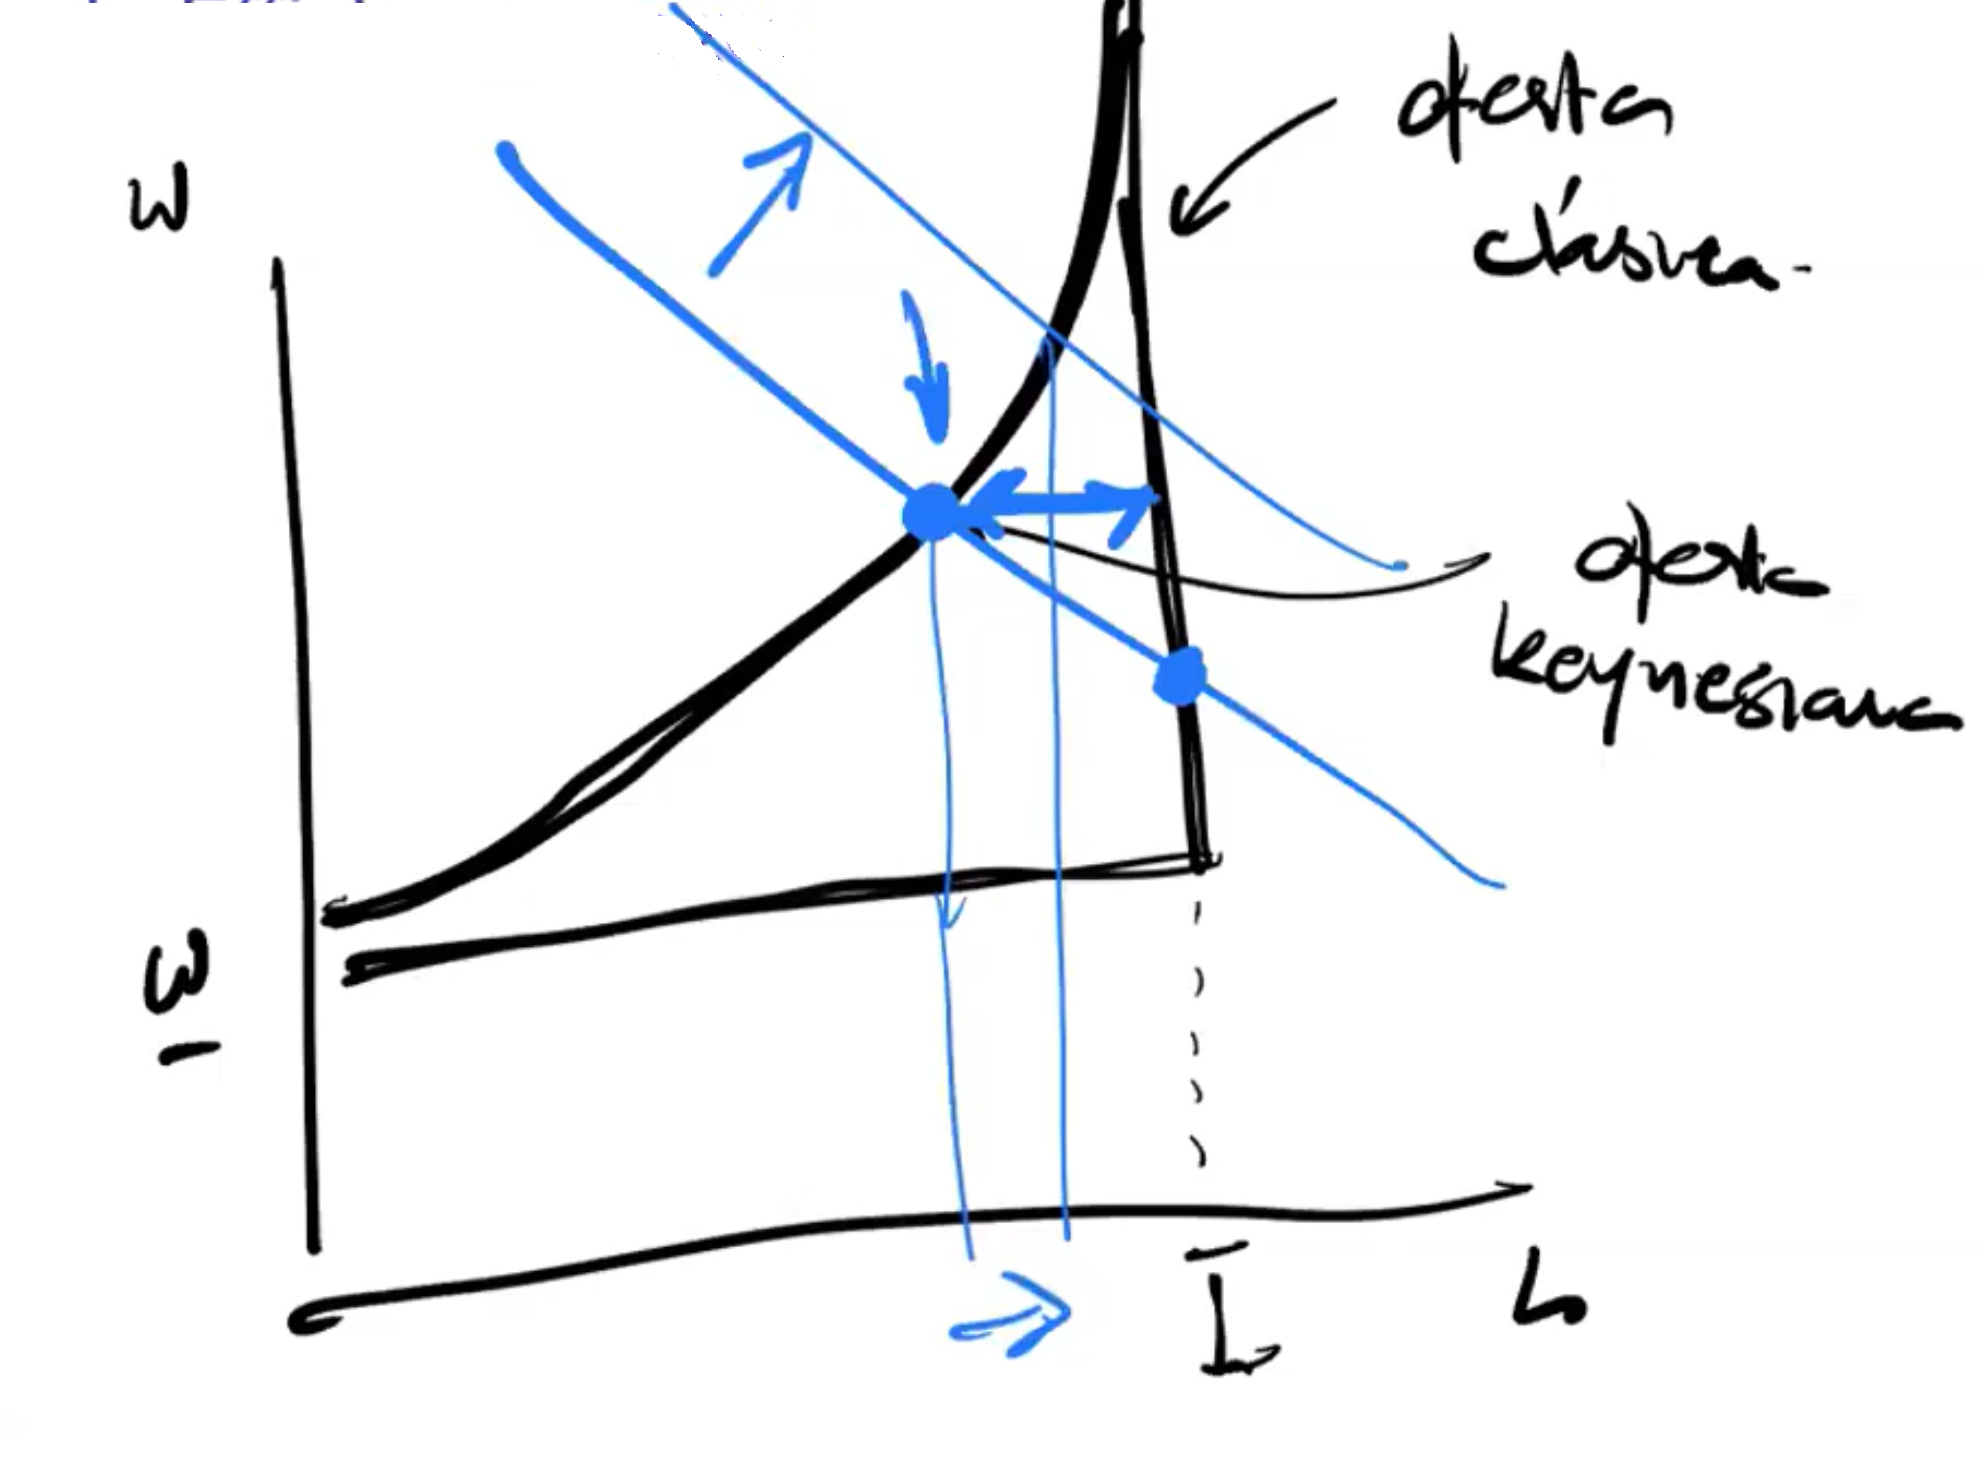 oferta
clásica.
w
oferta
keynesiana
w
L̄
L